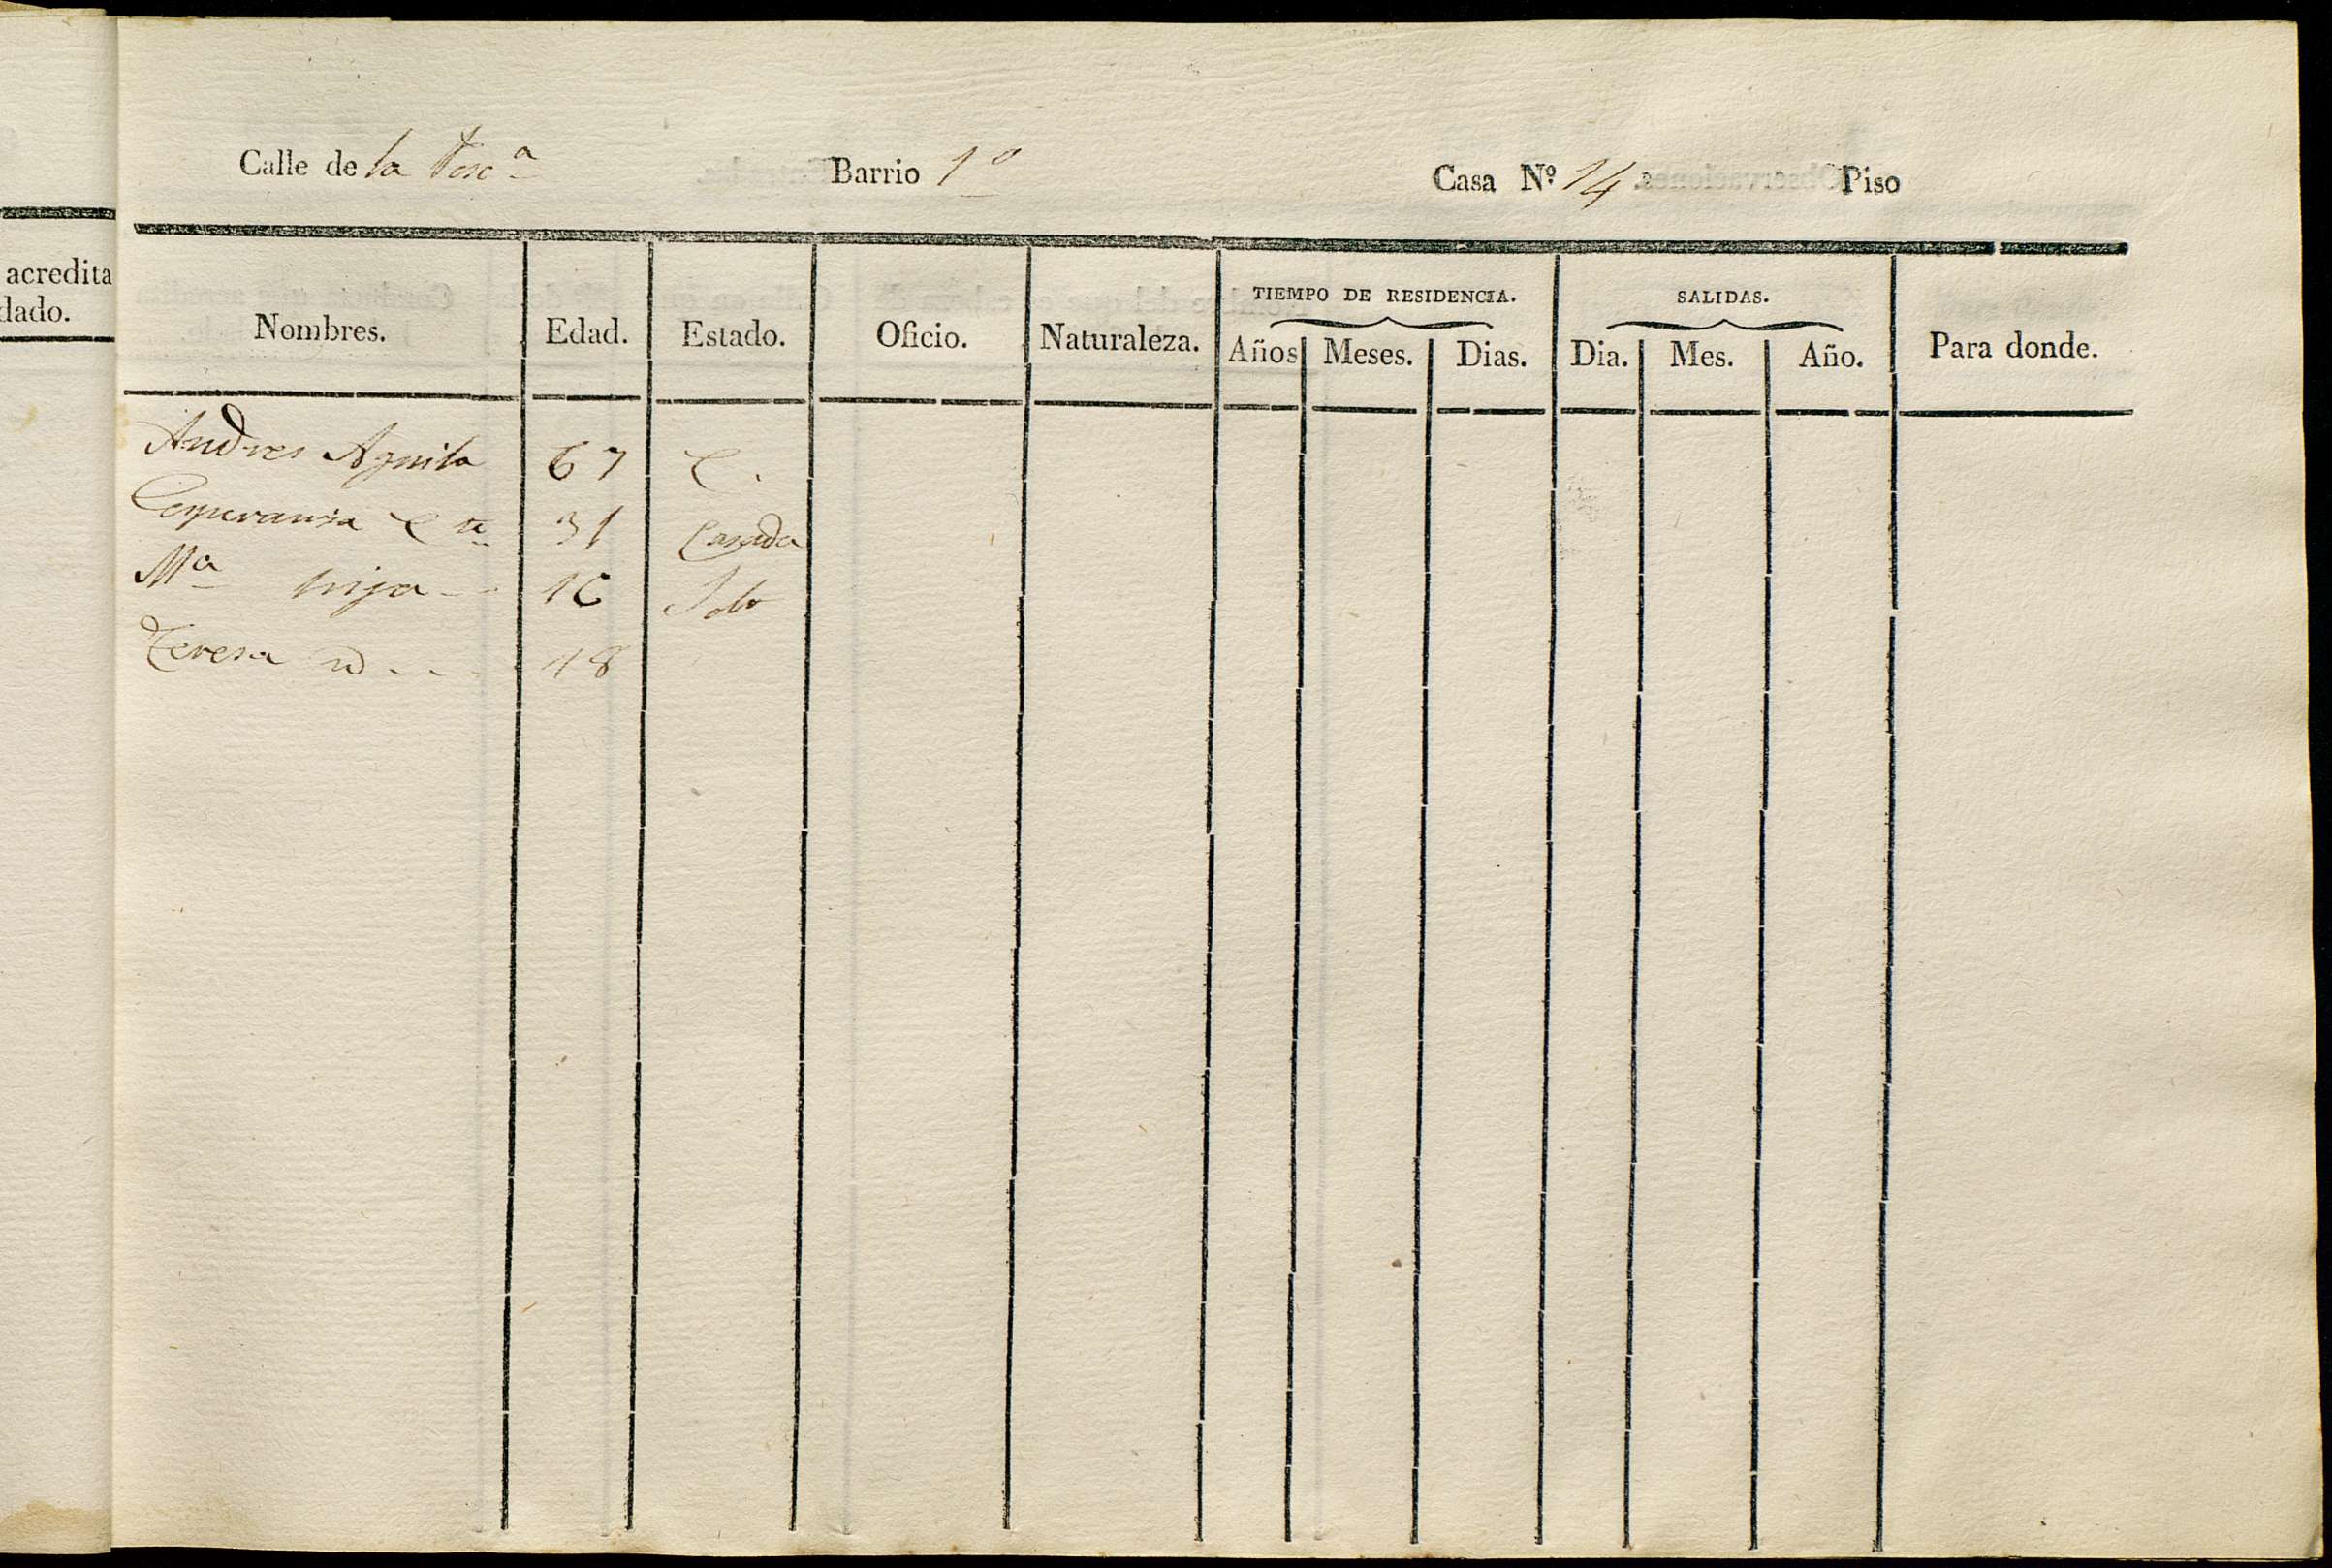 acredita
dado.
Calle de la Barrio 1º Casa Nº 14 Piso
TIEMPO DE RESIDENCIA. SALIDAS.
Nombres. Edad. Estado. Oficio. Naturaleza. Años Meses. Dias. Dia. Mes. Año. Para donde.
Andres Aguila 67 C.
Esperanza 31 Casada
Mª hija 16
Teresa id 18